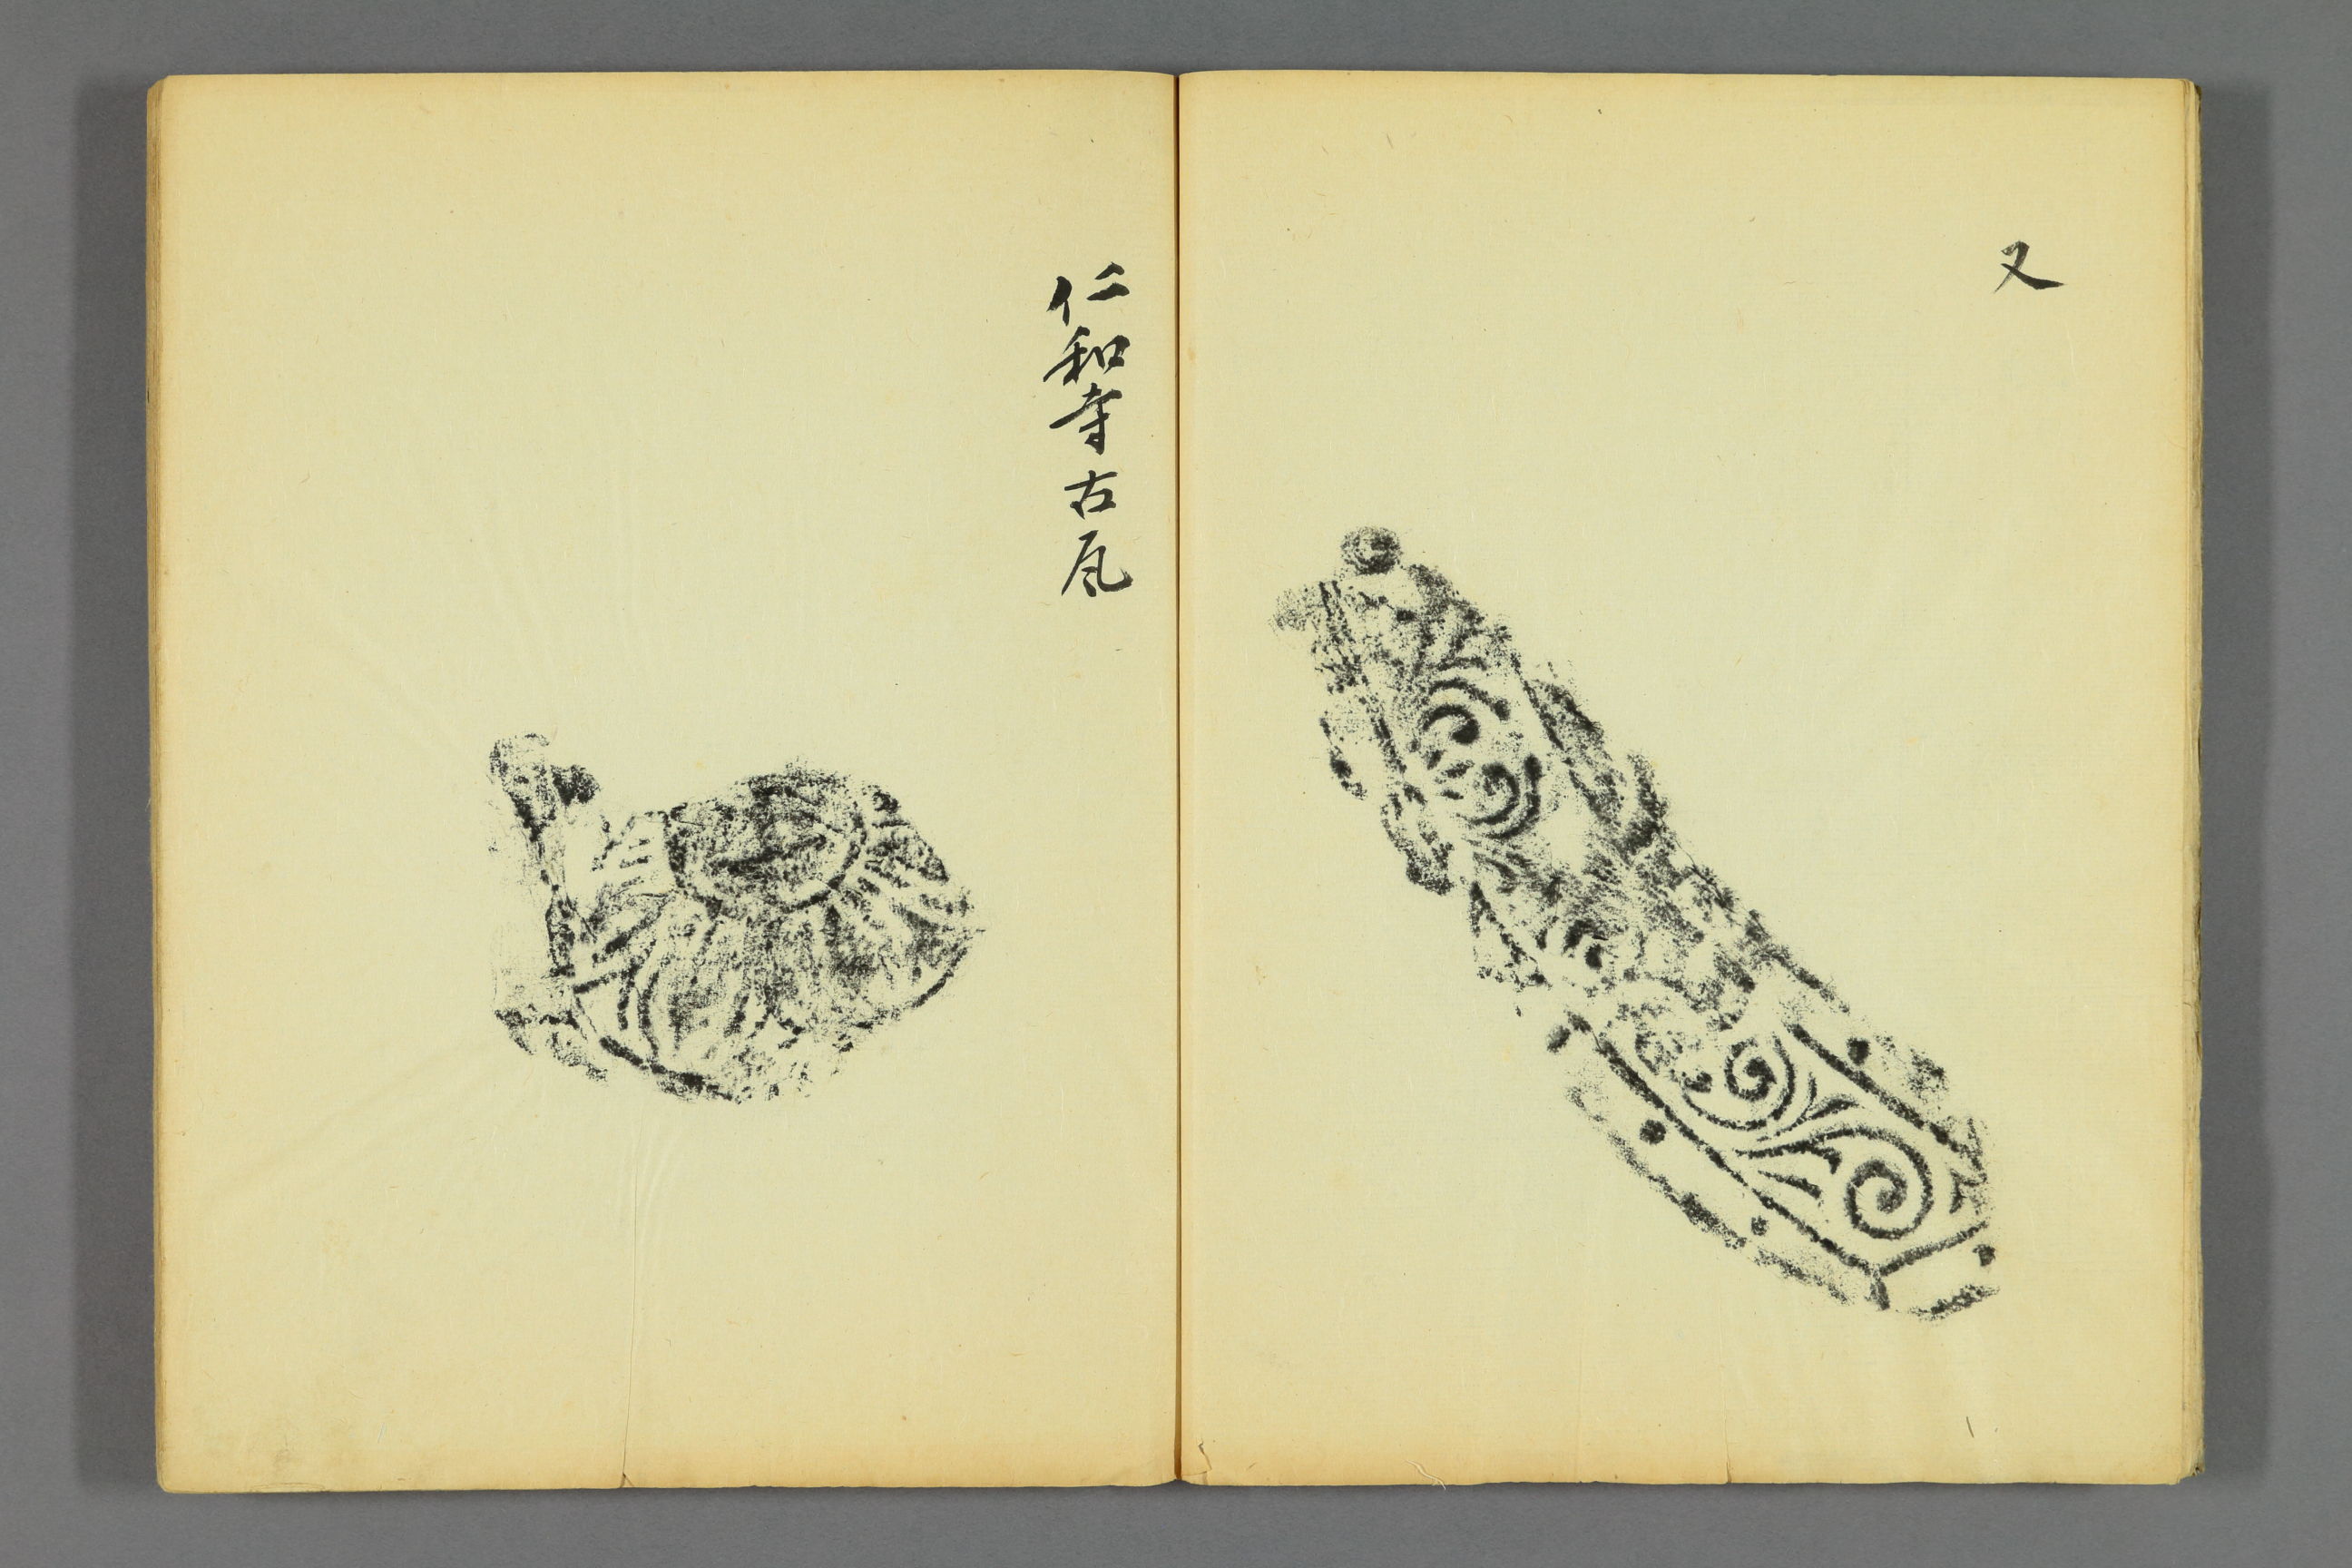 又
仁和寺古瓦